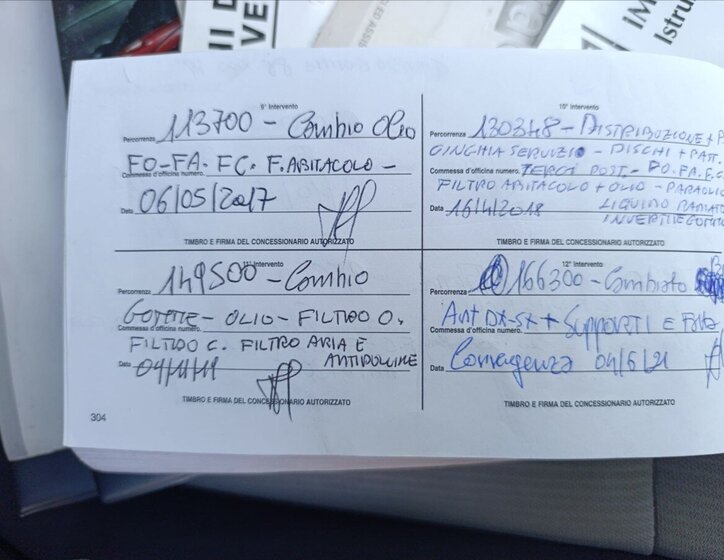 HI D
VE
IM
Istru
9° Intervento
Percorrenza 113700 - Cambio Olio
FO-FA. FC. F. ABITACOLO -
Commessa d'officina numero.
Data 06/05/2017
TIMBRO E FIRMA DEL CONCESSIONARIO AUTORIZZATO
10° Intervento
Percorrenza 130348 - DISTRIBUZIONE + P
CINGHIA SERVIZIO - DISCHI + PAST.
Commessa d'officina numero. POST. - FO. FA. F.C
FILTRO ABITACOLO + OLIO - PARAOLIO
Data 16/4/2018 LIQUIDO RADIAT
TIMBRO E FIRMA DEL CONCESSIONARIO AUTORIZZATO
11° Intervento
Percorrenza 149500 - Cambio
GOMME - OLIO - FILTRO O.
Commessa d'officina numero.
FILTRO C. FILTRO ARIA E
Data ANTIPOLLINE
TIMBRO E FIRMA DEL CONCESSIONARIO AUTORIZZATO
12° Intervento
Percorrenza 166300 - Cambiato
Ant DX-SX + SUPPORTI E Fatta
Commessa d'officina numero.
Data Convergenza 04/6/21
TIMBRO E FIRMA DEL CONCESSIONARIO AUTORIZZATO
304